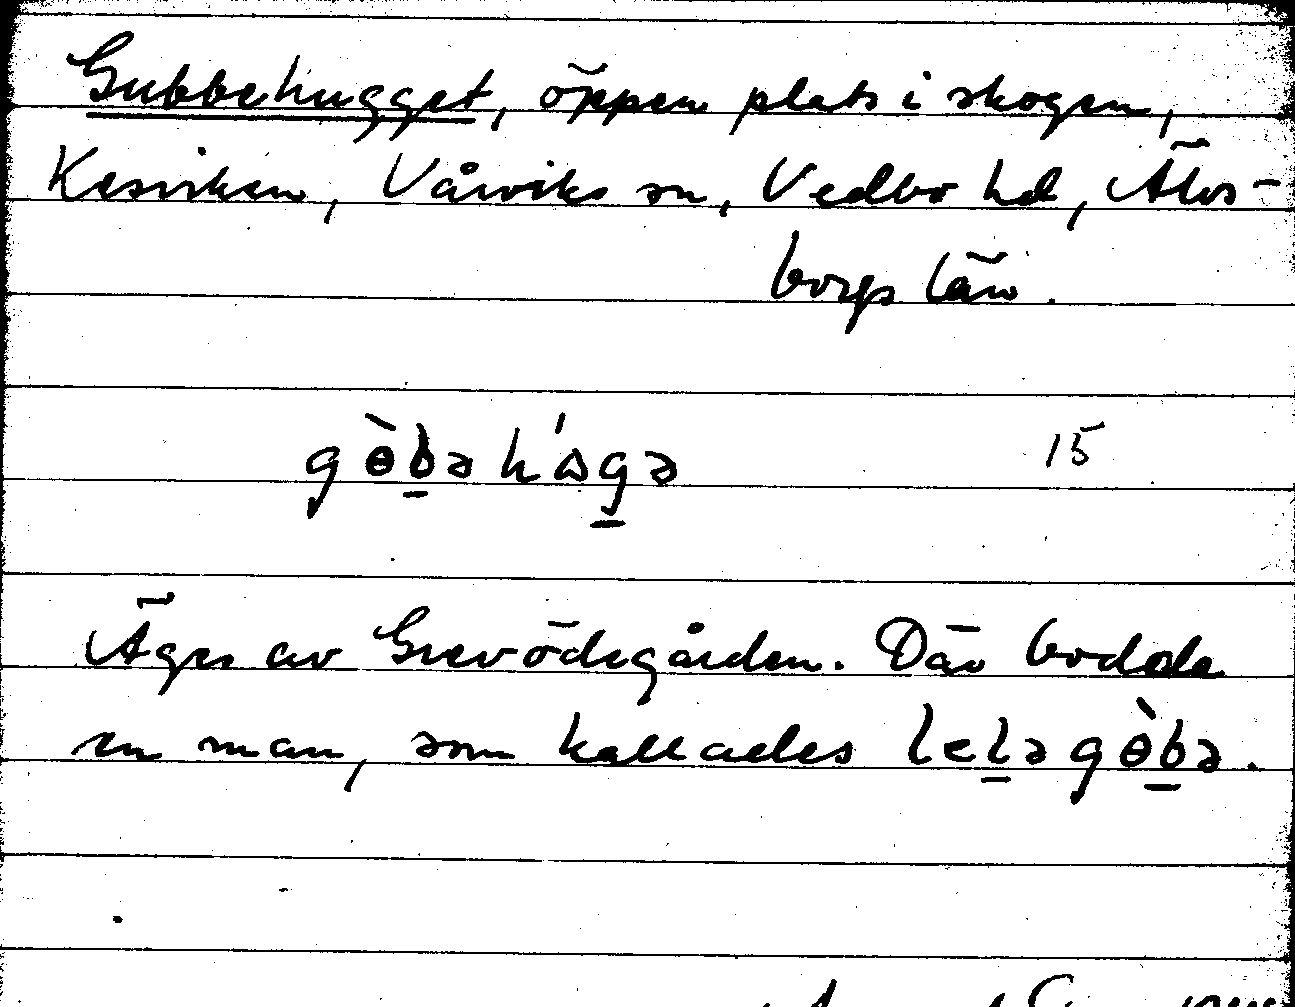 Gubbehugget, öppen plats i skogen,
Kesviken, Vårviks sn, Vedbo hd, Älvs-
borgs län.
gɵ̀b̲ə h'ɷg̲ə 15
Äges av Grevödegården. Där bodde
en man, som kallades lel̲ə gɵ̀b̲ə.